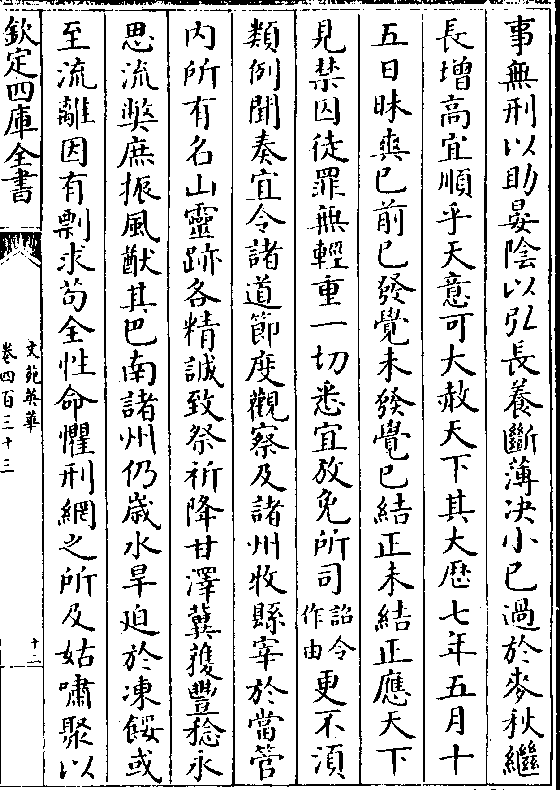 事無刑以助晏陰以弘長養斷薄決小已過於麥秋繼
長增高宜順乎天意可大赦天下其大歴七年五月十
五日昧爽已前已發覺未發覺已結正未結正應天下
見禁囚徒罪無輕重一切悉宜放免所司詔令作由更不湏
類例聞奏宜令諸道節度觀察及諸州牧縣宰於當管
内所有名山靈跡各精誠致祭祈降甘澤冀獲豐稔永
思流弊庶振風猷其巴南諸州仍嵗水旱迫於凍餒或
至流離因有剽求苟全性命懼刑網之所及姑嘯聚以
欽定四庫全書
文苑英華
卷四百三十三
十二